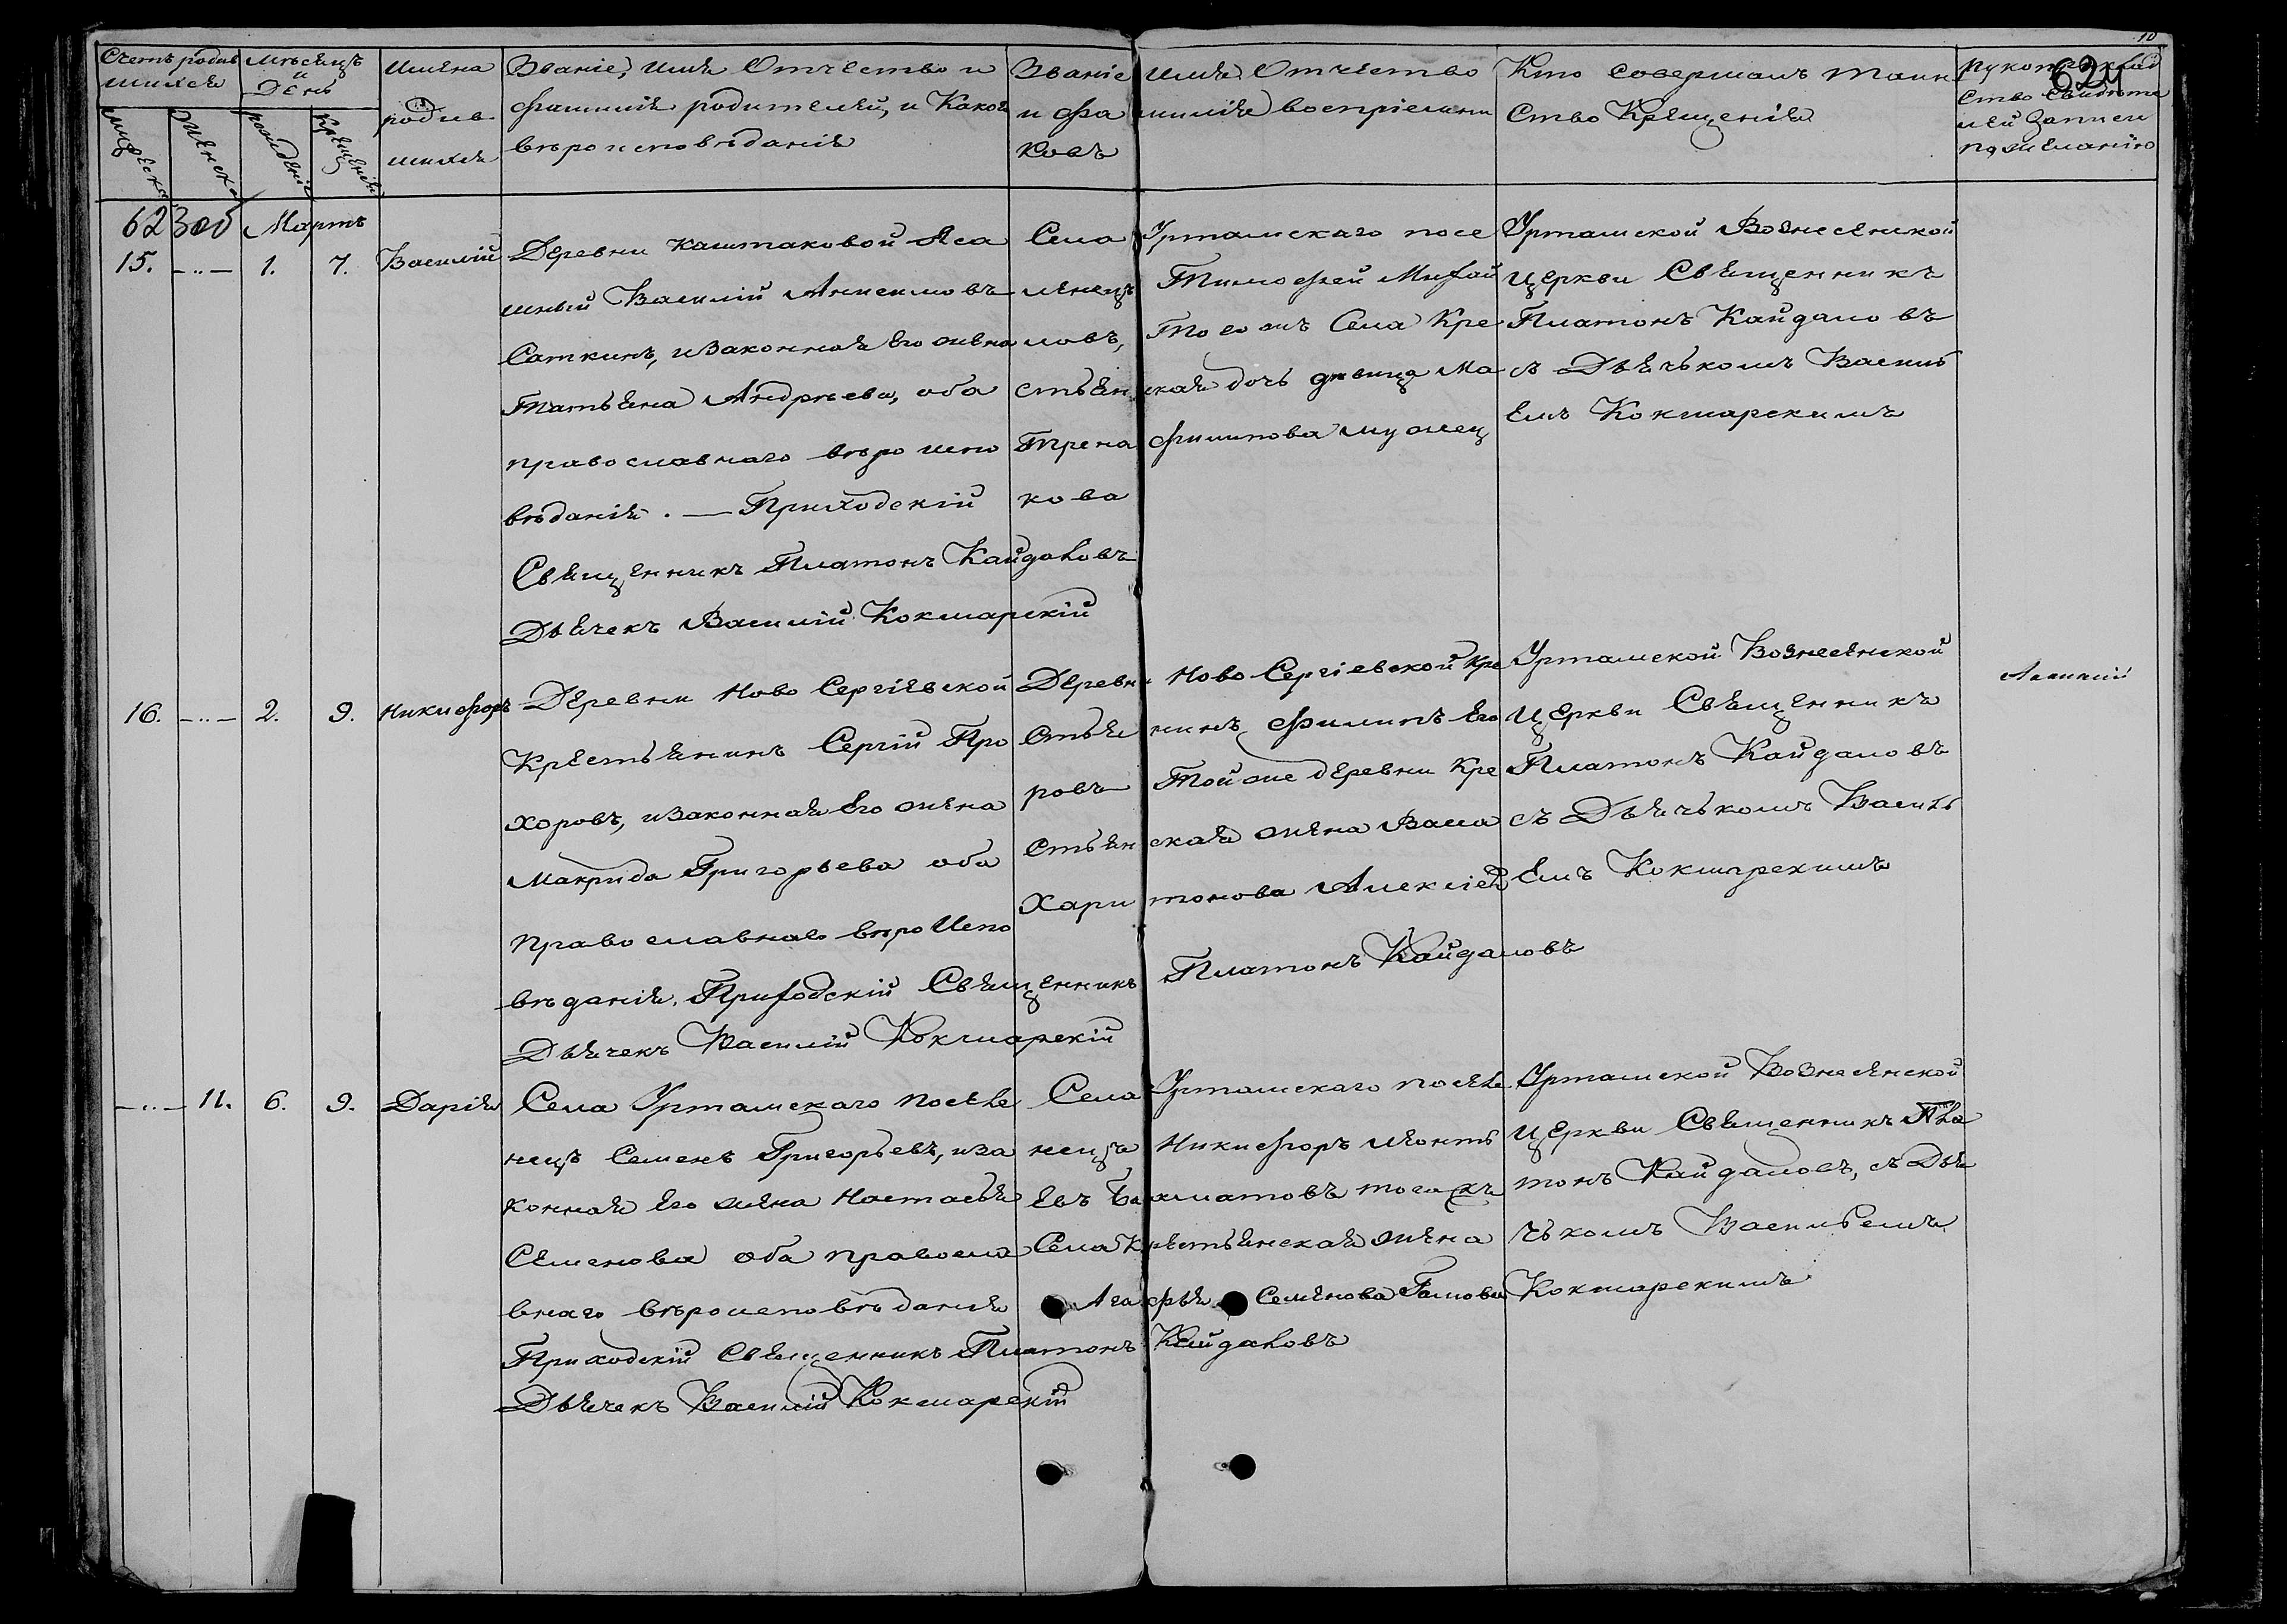 10
624
Счетъ родив
шихся
Мѣсяцъ
и
День
Имена
родив
шихся
Званіе, имя Отчество и
фамилія родителей, и Какого
вѣроисповѣданія
Званіе имя Отчество
и фа милія воспріемни
ковъ
Кто совершалъ таин
ство Крещенія
рукоприклад
ство свидѣте
лей записи
по желанію
мужеска
женска
рожденія
крещенія
62 Зоб Мартъ
15. —..— 1. 7. Василій
Деревни Каштаковой Яса
шный Василій Анисимовъ
Саткинъ, изаконная Его жена
Татьяна Андрѣева, оба
православнаго вѣро испо
вѣданія. — Приходскій
Священникъ Платонъ Кайдаловъ
Дьячекъ Василій Кокшарскій
Села Уртамскаго посе
ленецъ Тимофей Михай
ловъ, того жъ Села Кре
стьян ская дочь дѣвица Ма
трена Филипова
кова
Уртамской Вознесенской
церкви Священникъ
Платонъ Кайдаловъ
съ Дьячькомъ Василь
емъ Кокшарскимъ
16. —..— 2. 9. Никифоръ
Деревни Ново Сергіевской
Крестьянинъ Сергій Про
хоровъ, изаконная Его жена
Макрида Григорьева оба
православнаго вѣро Испо
вѣданія. Приходскій Священникъ Платонъ Кайдаловъ
Дьячекъ Василій Кокшарскій
Деревни Ново Сергіевской Кре
стья нинъ Филипъ Его
ровъ Той же деревни Кре
стьян ская жена Васса
Хари тонова
Уртамской Вознесенской
церкви Священникъ
Платонъ Кайдаловъ
съ Дьячькомъ Василь
Емъ Кокшарскимъ
—..— 11. 6. 9. Дарія
Села Уртамскаго поселе
нецъ Семенъ Григорьевъ, иза
конная Его жена Настасья
Семенова оба правосла
внаго вѣроисповѣданія
Приходскій Священникъ Платонъ Кайдаловъ
Дьячекъ Василій Кокшарскій
Села Уртамскаго поселе
нецъ Никифоръ Леонть
евъ Ба хматовъ тогожъ
Села Крестьянская жена
Ага фья Семенова
Уртамской Вознесенской
церкви Священникъ Пла
тонъ Кайдаловъ, съ Дья
чькомъ Васильемъ
Кокшарскимъ